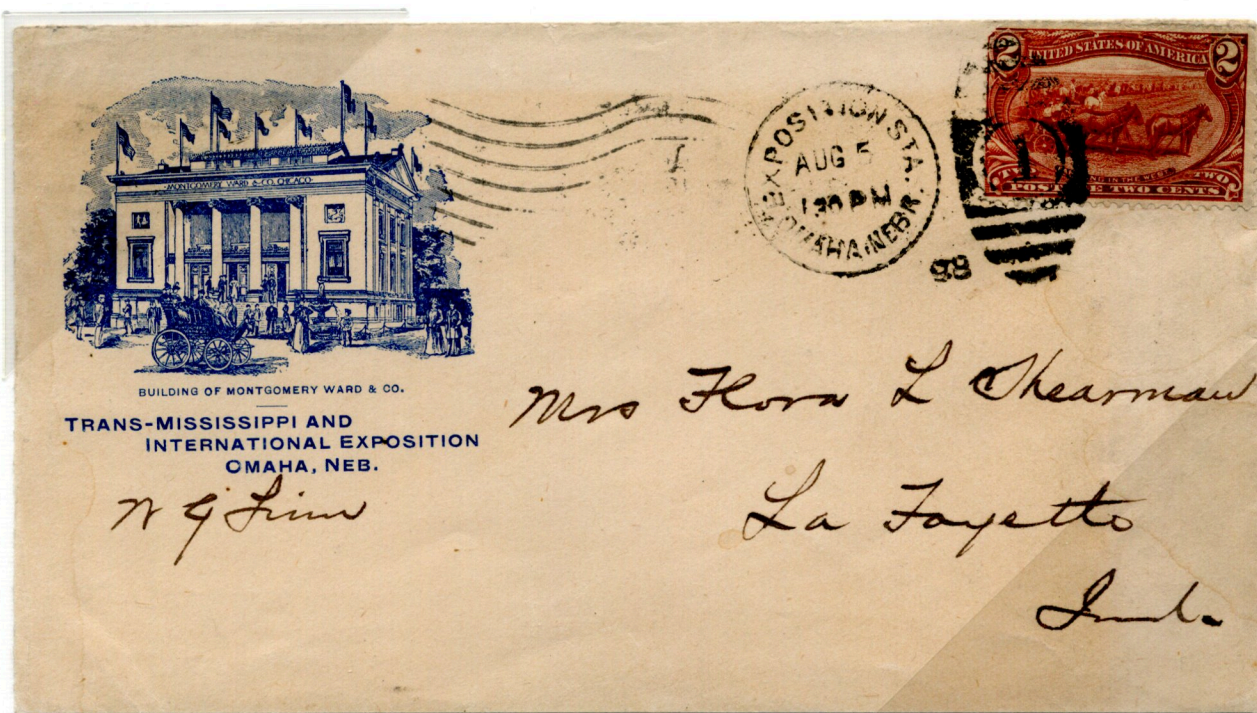 MONTGOMERY WARD & CO. CHICAGO
BUILDING OF MONTGOMERY WARD & CO.
TRANS-MISSISSIPPI AND
INTERNATIONAL EXPOSITION
OMAHA, NEB.
EXPOSITION STA.
AUG 5
1 30 PM
OMAHA, NEBR.
98
1
2 UNITED STATES OF AMERICA 2
IN THE WEST
TWO
POSTAGE TWO CENTS
Mrs Flora L Shearman
La Fayette
Ind.